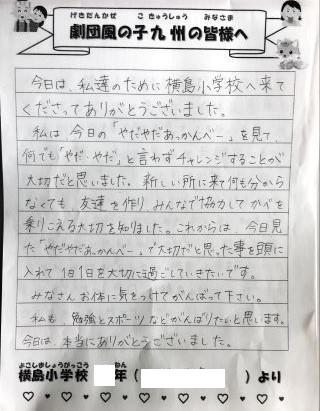 げきだんかぜ こ きゅうしゅう みなさま
劇団風の子九州の皆様へ
今日は、私達のために横島小学校へ来て
くださってありがとうございました。
私は今日の「やだやだあっかんべー」を見て、
何でも「やだ・やだ」と言わずチャレンジすることが
大切だと思いました。新しい所に来て何も分から
なくても、友達を作りみんなで協力してかべを
乗りこえる大切を知りました。これからは、今日見
た「やだやだあっかんべー」で大切だと思った事を頭に
入れて1日1日を大切に過ごしていきたいです。
みなさんお体に気をつけてがんばって下さい。
私も、勉強とスポーツなどがんばりたいと思います。
今日は、本当にありがとうございました。
よこしましょうがっこう ねん
横島小学校 年( )より